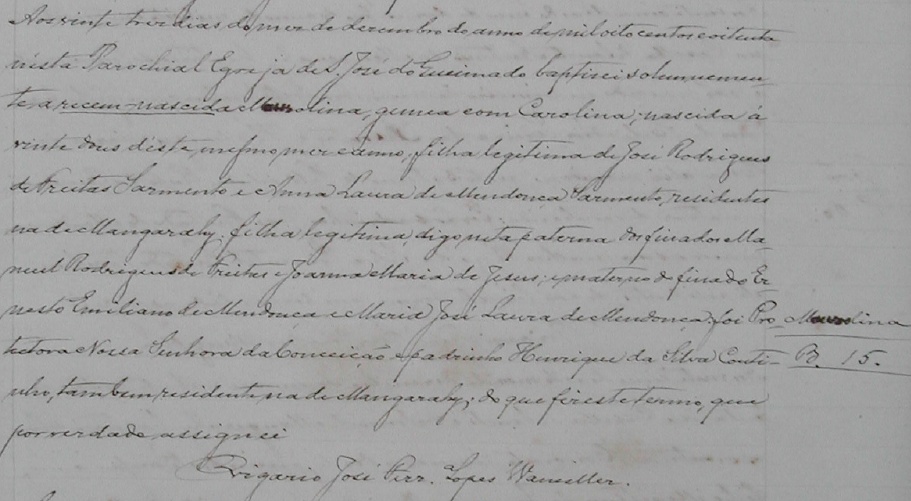 Aos vinte e tres dias do mez de dezembro do anno de mil oito centos e oitenta
nésta Parochial Egreja de S. José do Queimado baptisei solemnemen-
te, a recem-nascida, gemea com Carolina, nascida á
vinte dous déste mesmo mez e anno, filha legitima de José Rodrigues
de Freitas Sarmento e Anna Laura de Mendonça Sarmento, residentes
na de Mangarahy; filha legitima, digo neta paterna dos finados Ma-
noel Rodrigues de Freitas e Joanna Maria de Jesus; e materno do finado Er-
nesto Emiliano de Mendonça e Maria José Laura de Mendonça; foi Pro-
tectora Nossa Senhora da Conceição e padrinho Henrique da Silva Couti-
nho, tambem residente na de Mangarahy; do que fiz este termo, que
por verdade assignei
O vigario José Lopes
B. 15.